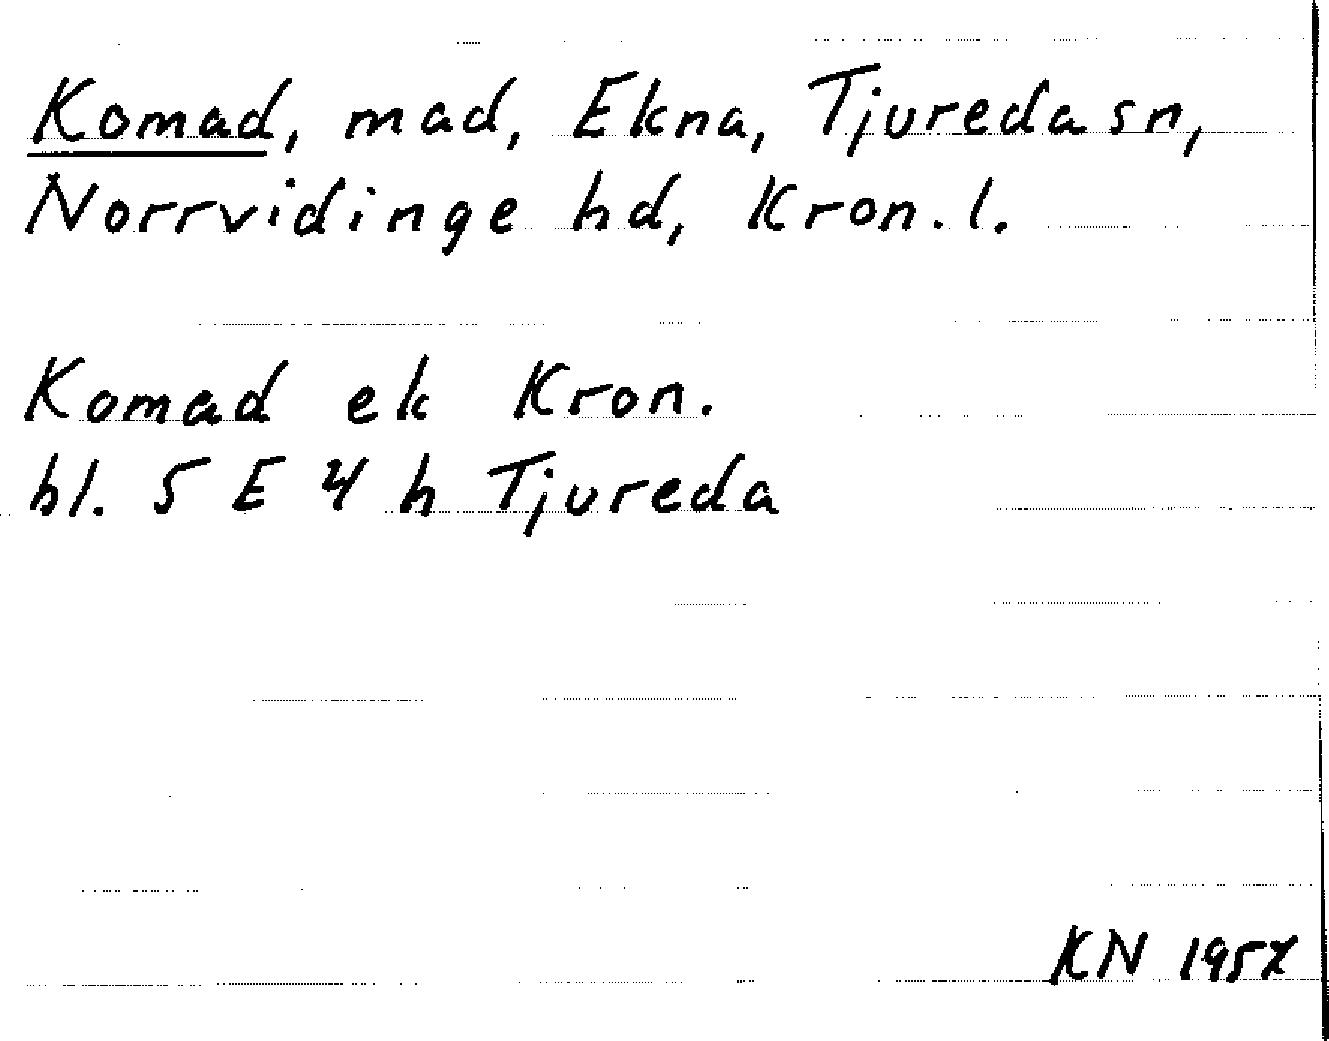 Komad, mad, Ekna, Tjureda sn,
Norrvidinge hd, Kron. l.
Komad ek Kron.
bl. 5 E 4 h Tjureda
KN 1957